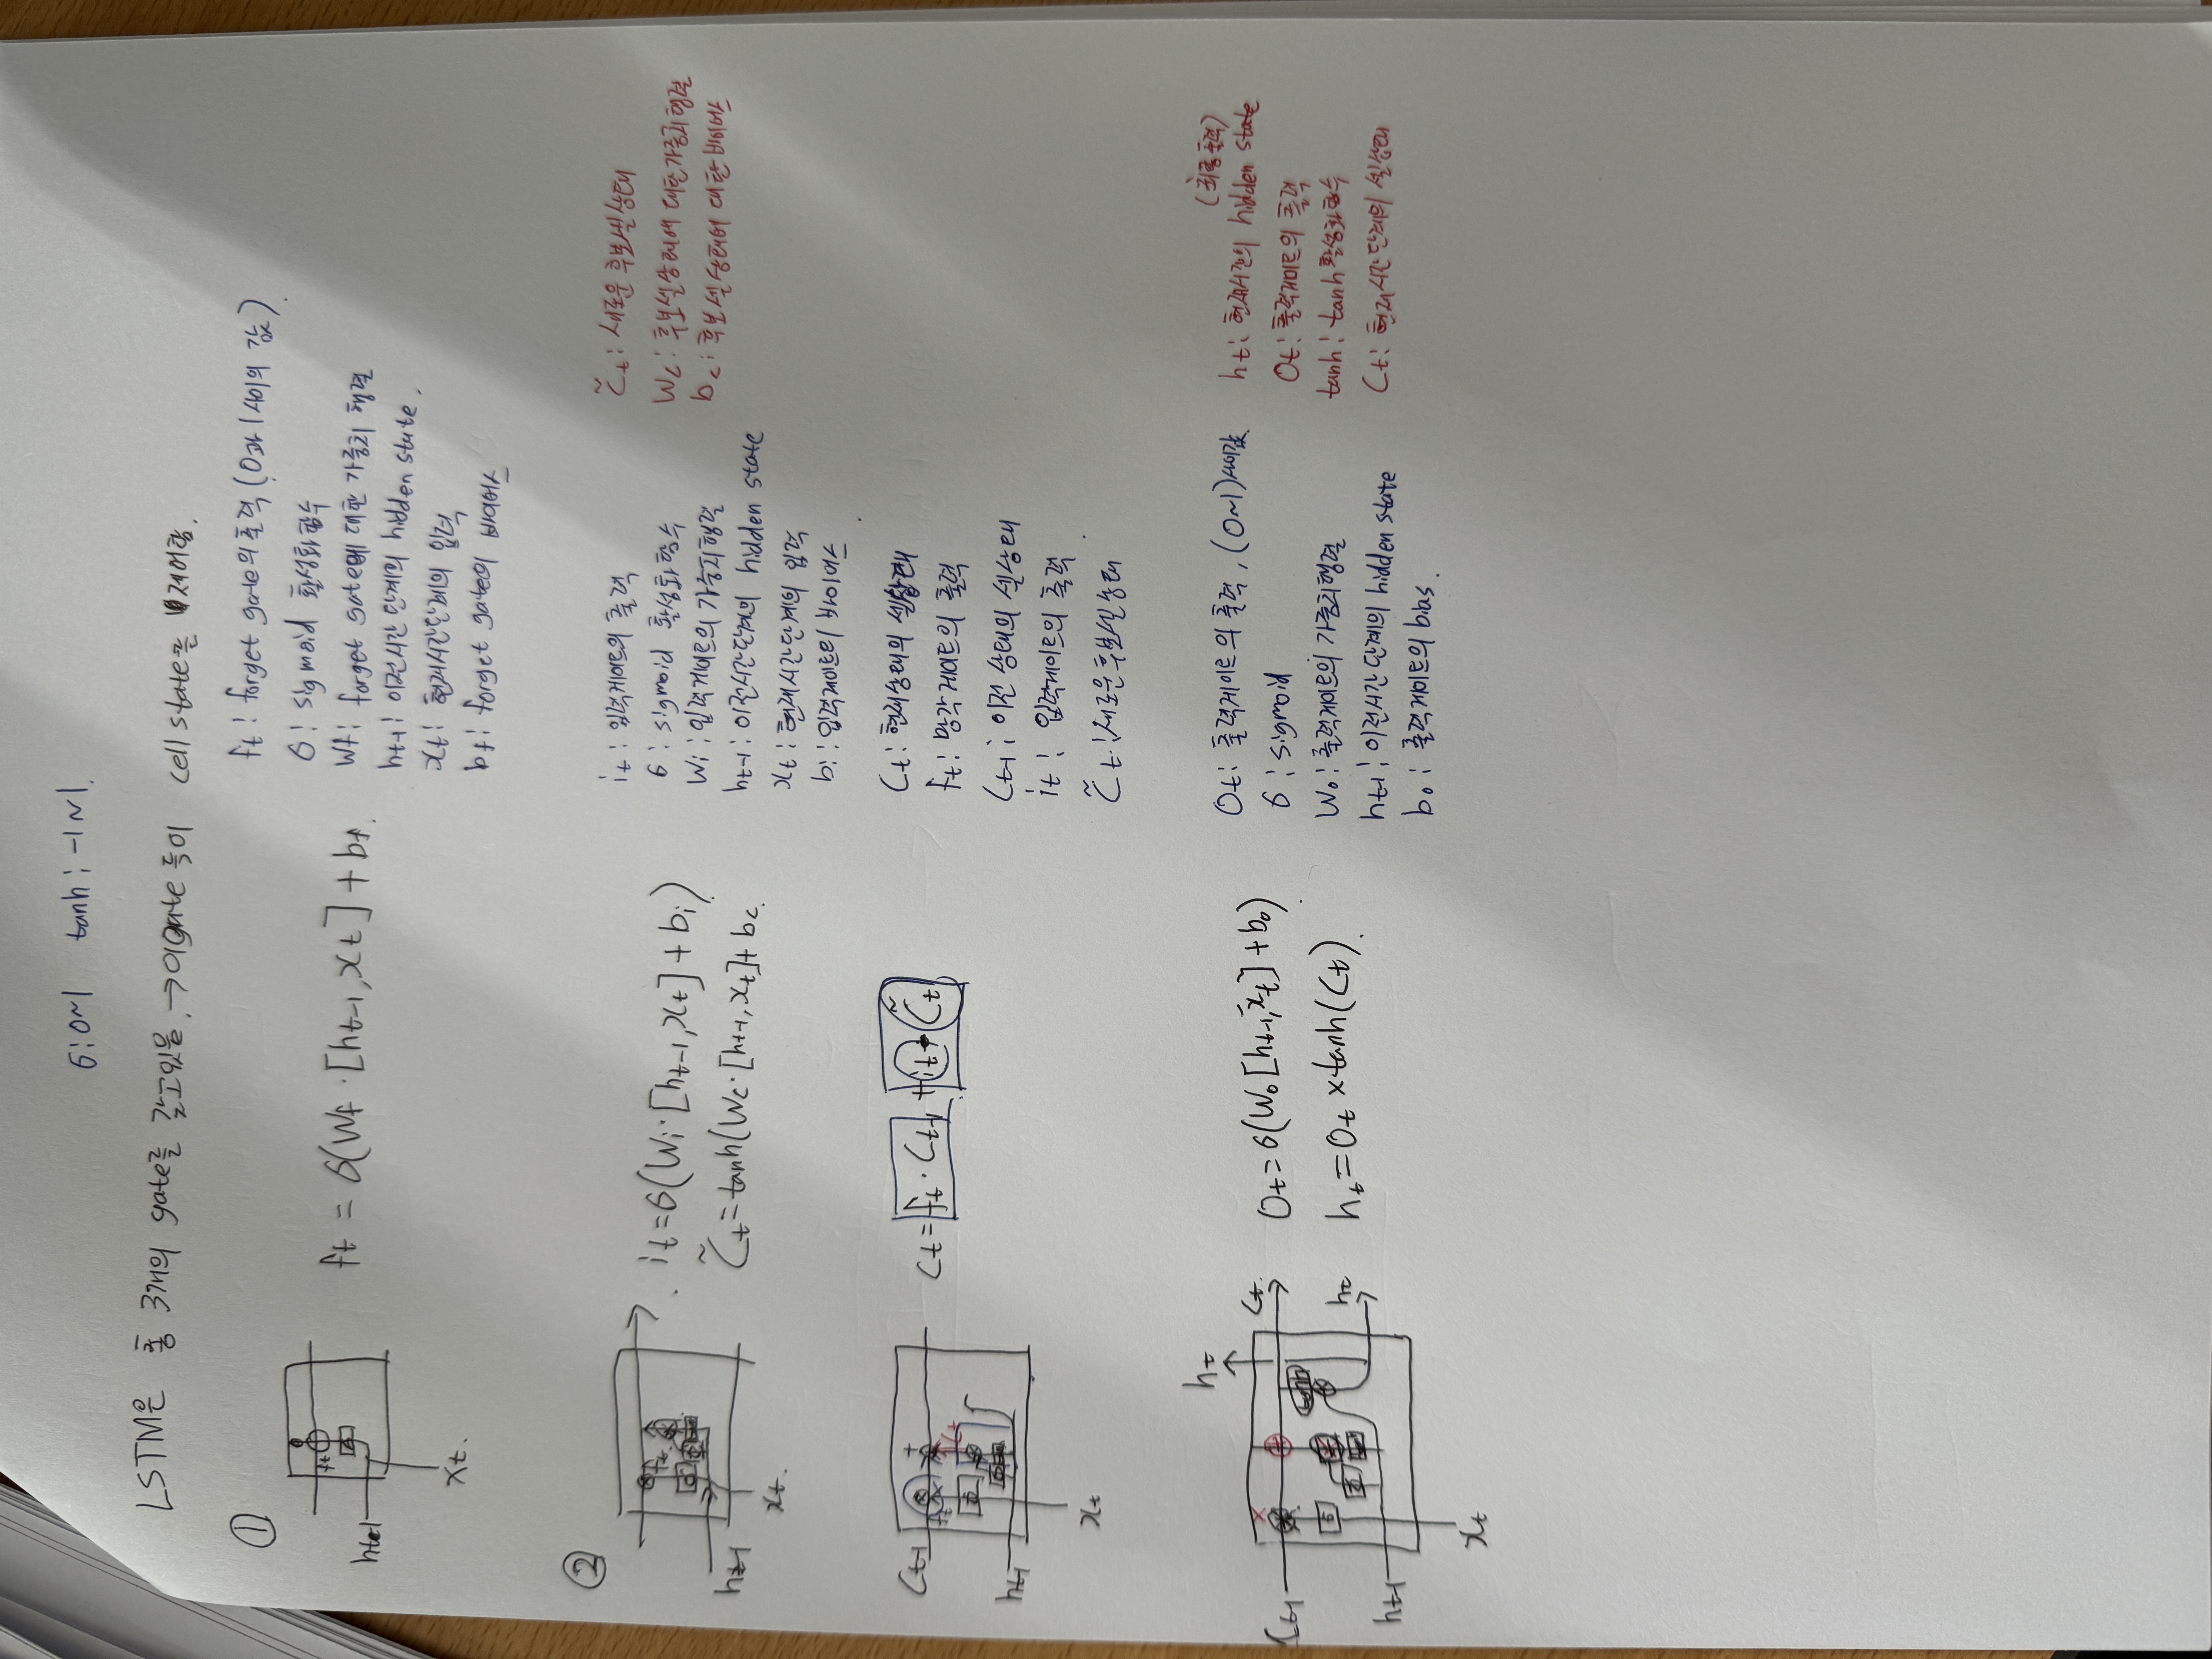 σ: 0~1 tanh: -1~1.
LSTM은 총 3개의 gate를 갖고있음. → 이 gate 들이 cell state를 제어함.
①
ft
ht-1
xt.
ft = σ(Wf · [ht-1, xt] + bf.
ft: forget gate의 출력 (0과 1사이의 값)
σ: sigmoid 활성화 함수
Wf: forget gate에 대한 가중치 행렬
ht-1: 이전시간 단계의 hidden state.
xt: 현재시간단계의 입력
bf: forget gate의 바이어스
②
ft
ht-1
xt.
it = σ(Wi · [ht-1, xt] + bi)
C̃t = tanh(Wc · [ht-1, xt] + bc.
it: 입력게이트의 출력
σ: sigmoid 활성화 함수
Wi: 입력게이트의 가중치행렬
ht-1: 이전시간단계의 hidden state
xt: 현재시간단계의 입력
bi: 입력게이트의 바이어스
C̃t: 새로운 후보셀상태
Wc: 후보셀상태에 대한가중치행렬
bc: 후보셀상태에 대한 바이어스
Ct-1
ft
+
ht-1
xt
Ct = ft · Ct-1 + it · C̃t
Ct: 현재상태의 셀상태
ft: 망각게이트의 출력
Ct-1: 이전 상태의 셀상태
it: 입력게이트의 출력
C̃t: 새로운후보셀상태
ht
Ct-1
Ct
tanh
ht
ht-1
xt
Ot = σ(Wo [ht-1, xt] + bo)
ht = Ot × tanh(Ct).
Ot: 출력게이트의 출력, (0~1)사이값.
σ: sigmoid
Wo: 출력게이트의 가중치행렬
ht-1: 이전시간 단계의 hidden state
bo: 출력게이트의 bias.
(최종출력)
ht: 현재시간의 hidden state
Ot: 출력게이트의 출력
tanh: tanh 활성화 함수
Ct: 현재시간단계의 셀상태